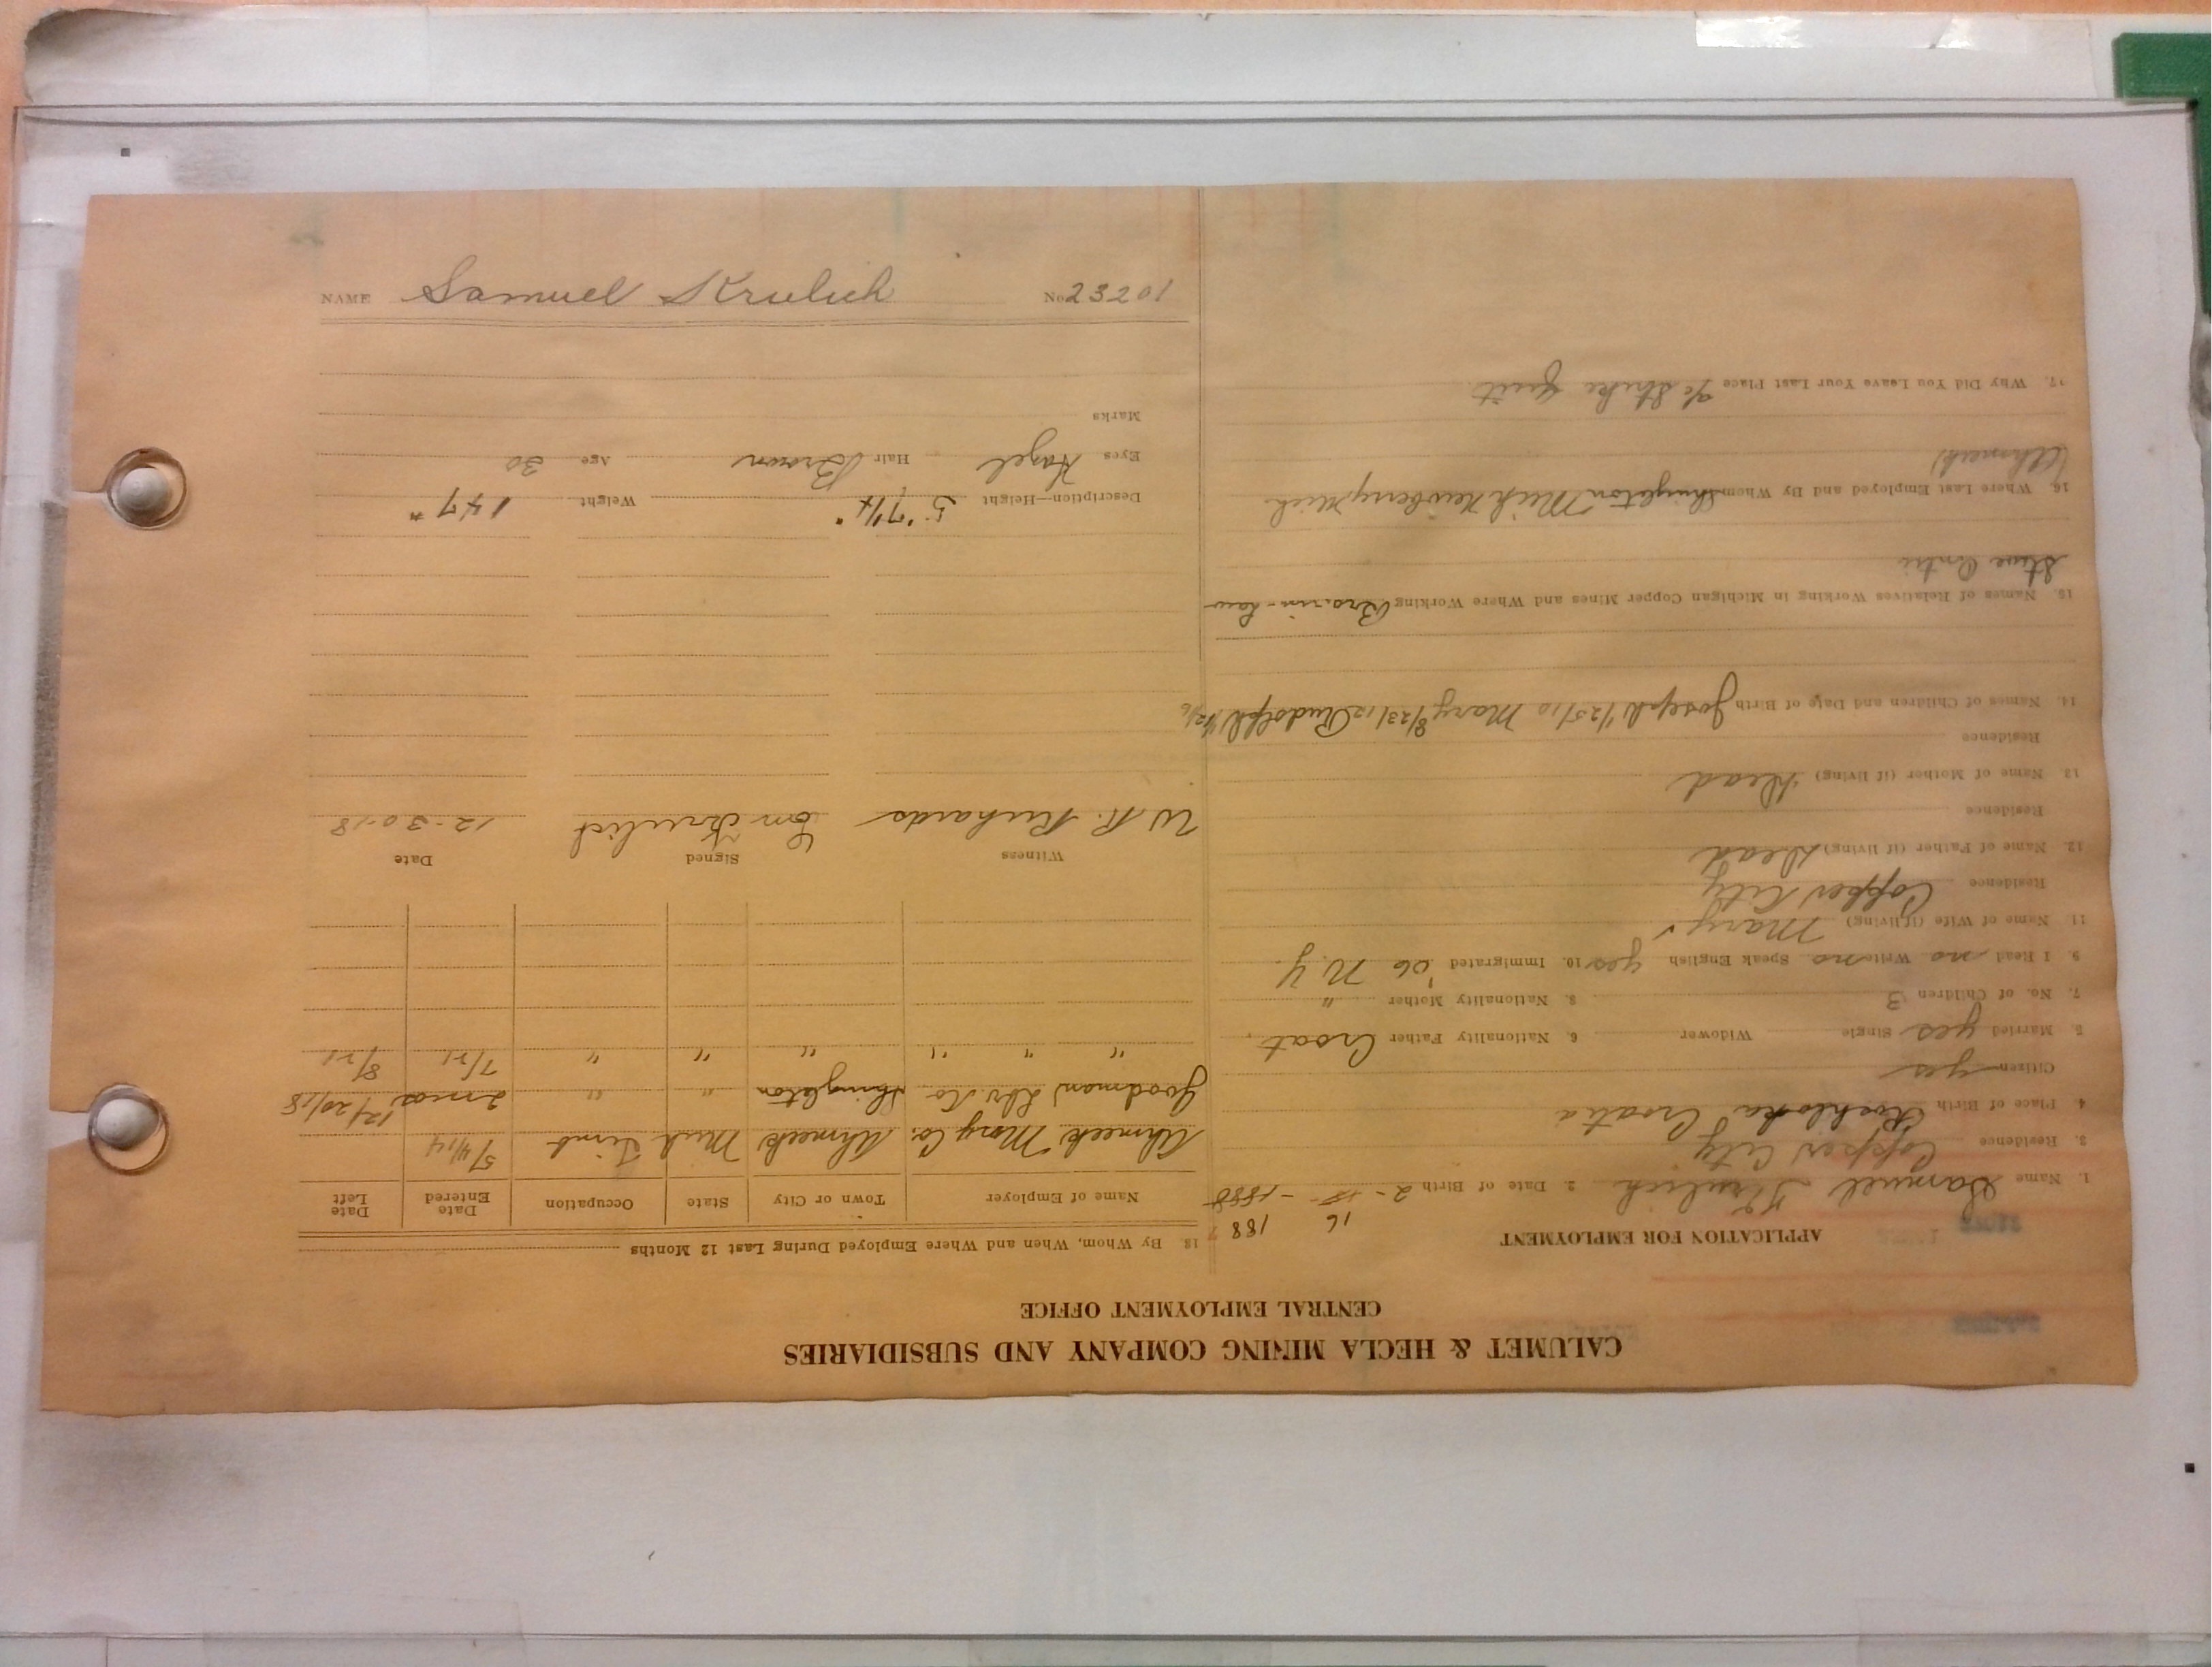 CALUMET & HECLA MINING COMPANY AND SUBSIDIARIES
CENTRAL EMPLOYMENT OFFICE
APPLICATION FOR EMPLOYMENT
16 1887
1. Name Samuel Krulich 2. Date of Birth 2-15-1888
3. Residence Copper City
4. Place of Birth Croatia
Citizen yes
5. Married yes Single Widower 6. Nationality Father Croat.
7. No. of Children 3 8. Nationality Mother "
9. I Read no Write no Speak English yes 10. Immigrated '06 N.Y.
11. Name of Wife (if living) Mary
Residence Copper City
12. Name of Father (if living) Dead
Residence
13. Name of Mother (if living) Dead
Residence
14. Names of Children and Date of Birth Joseph 1/25/10 Mary 8/23/12 Rudolph
15. Names of Relatives Working in Michigan Copper Mines and Where Working Bro-in-law
Steve
16. Where Last Employed and By Whom Shingleton Mich Newberry Mich
(Ahmeek)
17. Why Did You Leave Your Last Place a/c Strike Quit
18. By Whom, When and Where Employed During Last 12 Months
Name of Employer Town or City State Occupation Date Entered Date Left
Ahmeek Mng Co. Ahmeek Mich 5/4/14
Goodman Lbr. Co Shingleton " " 2 mos 12/20/18
" " " " " " 7/21 8/21
Witness Signed Date
W. R. Richards Sm Krulich 12-30-18
Description—Height 5' 7 1/4" Weight 147 #
Eyes Hazel Hair Brown Age 30
Marks
NAME Samuel Krulich No 23201